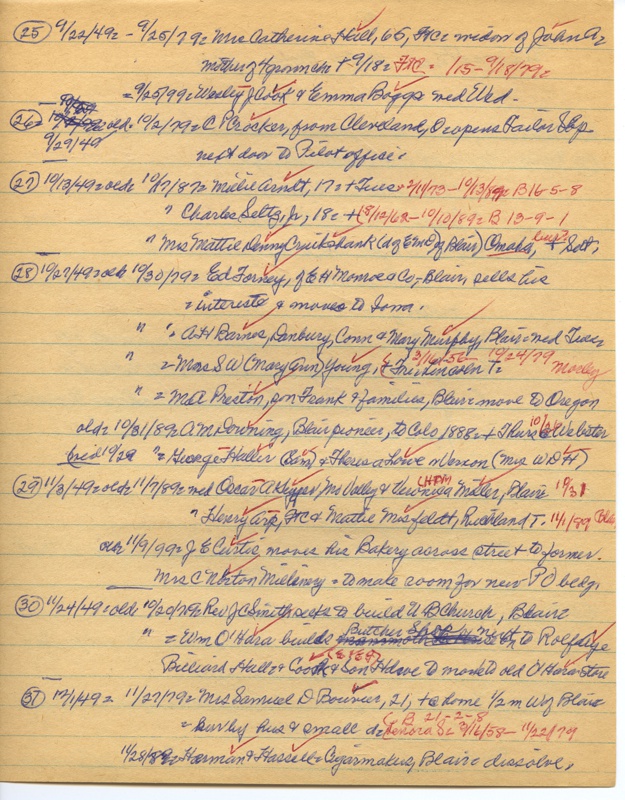 (25) 9/22/49 = - 9/25/79 = Mrs Catherine Hill, 65, FtC = widow of John A =
mother of 4 grown ch + 9/18 = FtC = 1/15 - 9/18/79 =
= 9/25/99 = Wesley J Cook & Emma Boggs wed Wed -
(26) = old = 10/2/79 = C P Crocker, from Cleveland, O opens Tailor Shop
9/29/49
next door to Pilot office.
(27) 10/13/49 = old = 10/17/89 = Millie Arndt, 17 = + Tues + 2/11/73 - 10/13/89 = B 16-5-8
" Charles Seltz, Jr, 18 = + (8/12/62 - 10/10/89 = B 13-9-1
" Mrs Mattie Denny Cruikshank (d of E W D of Blair) Omaha, + Sat,
(28) 10/27/49 = old 10/30/79 = Ed Forney, of E H Monroe & Co, - Blair, sells his
= interests & moves to Iowa.
" = A H Barnes, Danbury, Conn & Mary Murphy, Blair = wed Tues
" = Mrs S W (Mary Ann) Young, + 3/16/56 - 10/24/79
" = M A Preston, son Frank & families, Blair move to Oregon
old = 10/31/89 A M Downing, Blair pioneer, to Colo 1888 = + Thurs Webster
" = George Haller & Theresa Lowe Vernon (Mrs W D H)
(29) 11/3/49 = old = 11/7/89 = wed Oscar A , Mo Valley & Veronica Miller, Blair 10/31
" Henry Arp, FtC & Mattie Misfeldt, Richland T. 11/1/89
our 11/9/99 = J E Curtis moves his Bakery across street to former
Mrs C Norton Millinery = to make room for new P O bldg.
(30) 11/24/49 = old = 10/20/79 = Rev J C Smith seeks to build U B Church, Blair
" = Wm O'Hara builds Butcher Shop next to Rolf
Billiard Hall = & Cook & Son move to old O'Hara Store
(31) 12/1/49 = 11/27/79 = Mrs Samuel D Bouvier, 21, + @ home 1/2 m W of Blair
= survby hus & small d = Lenora S = 9/16/58 - 11/22/79
B 21-2-8
11/28/89 = Harman & Hassell = Cigarmakers, Blair = dissolve.